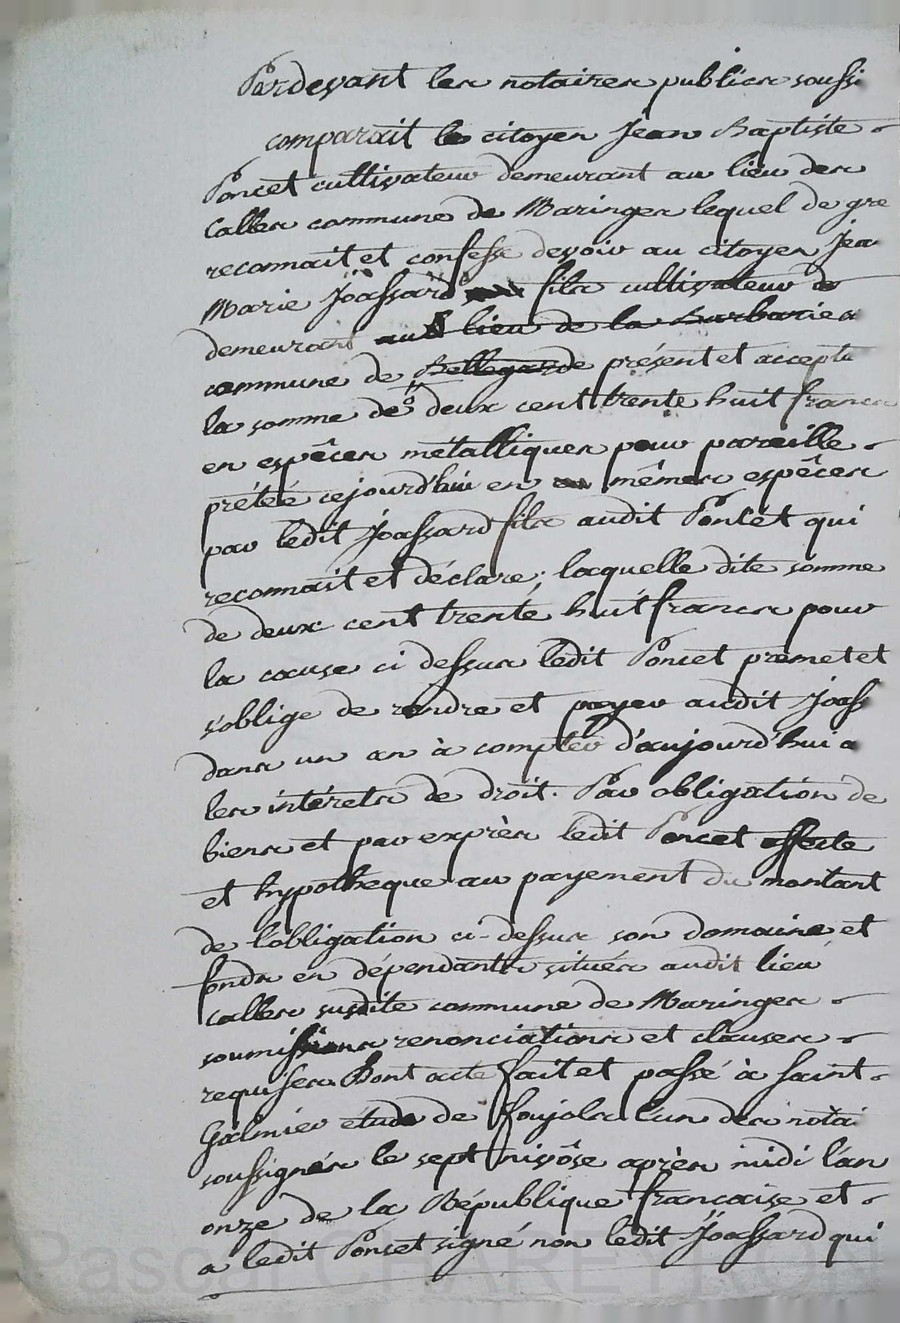 Pardevant les notaires publics soussi
comparait le citoyen Jean Baptiste
Poncet cultivateur demeurant au lieu des
Calles commune de Maringes lequel de gre
reconnait et confesse devoir au citoyen Jea
Marie Joassard fils cultivateur
demeurant au lieu de la Barbaries
commune de Bellegarde présent et accepta
la somme de deux cent trente huit francs
en espêces métalliques pour pareille
prétée cejourd'hui en mêmes espêces
par ledit Joassard fils audit Poncet qui
reconnait et déclare; laquelle dite somme
de deux cent trente huit francs pour
la cause ci dessus ledit Poncet promet et
s'oblige de rendre et payer audit Joass
dans un an à compter d'aujourd'hui a
les intérets de droit. Par obligation de
biens et par exprès ledit Poncet affecte
et hypotheque au payement du montant
de l'obligation ci-dessus son domaine et
fonds en dépendants situés audit lieu
calles susdite commune de Maringes
soumissions renonciations et clauses
requises Dont acte fait et passé à Saint
Galmier étude de Poujols l'un des notai
soussignés le sept nivôse après midi l'an
onze de la République française et
a ledit Poncet signé non ledit Joassard qui
Pascal CHAREYRON